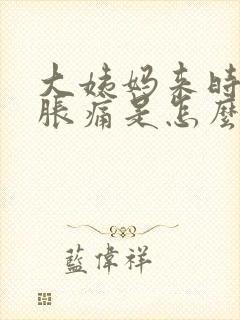 大姨妈来时
胀痛是怎麼
藍偉祥